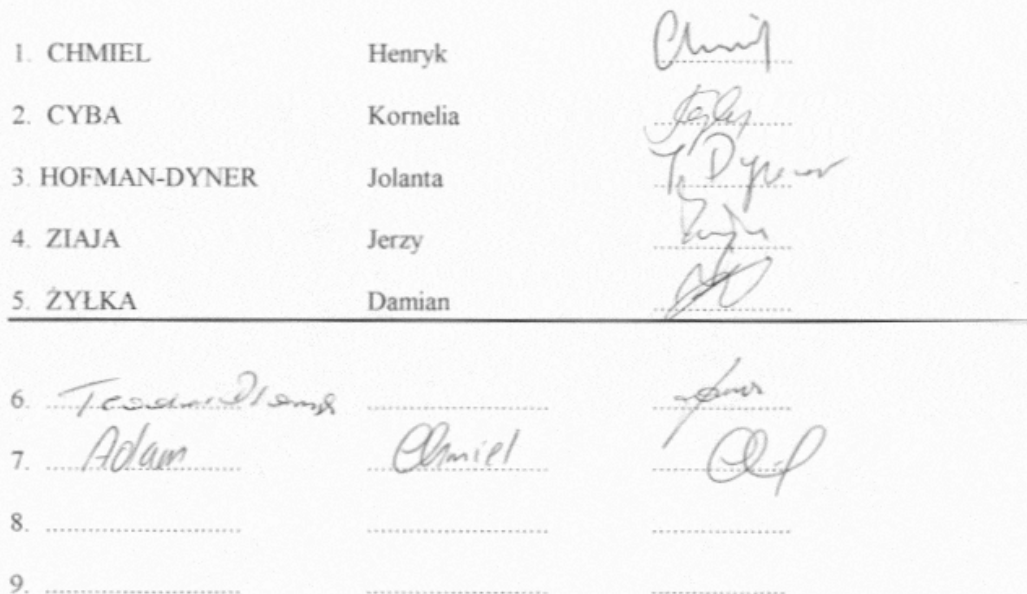 1. CHMIEL Henryk
2. CYBA Kornelia
3. HOFMAN-DYNER Jolanta J. Dyner
4. ZIAJA Jerzy
5. ŻYŁKA Damian
6.
7. Adam Chmiel
8.
9.